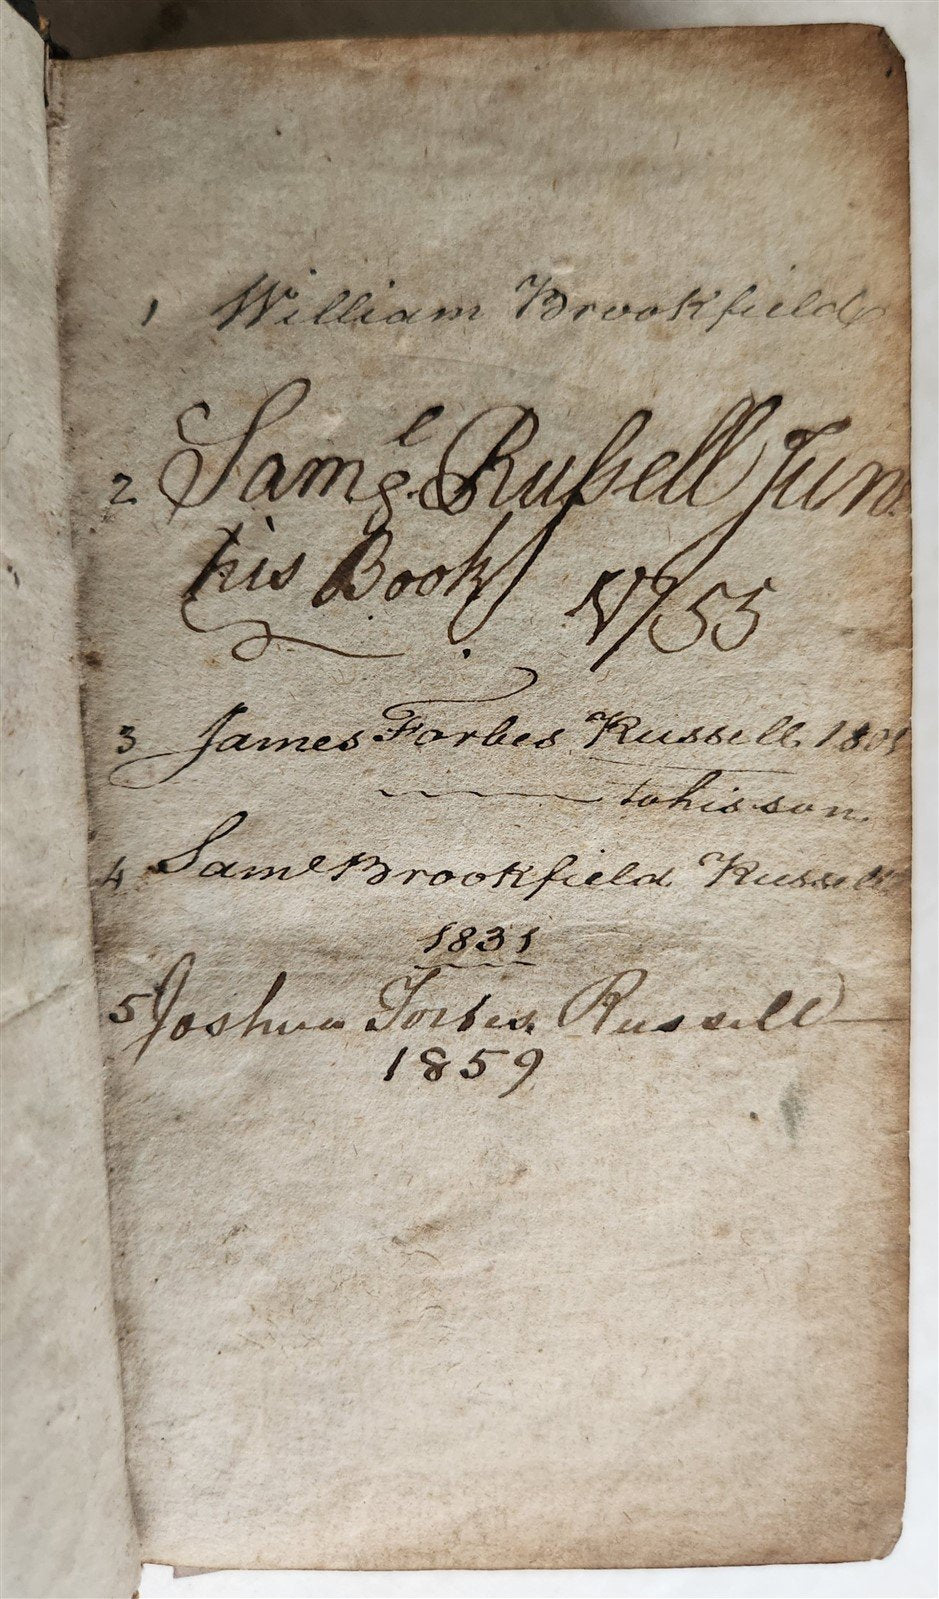 1 William Brookfield
2 Saml. Ruſsell Junr
his Book 1755
3 James Forbes Russell. 1801
to his son.
4 Saml Brookfield Russell
1831
5 Joshua Forbes. Russell
1859